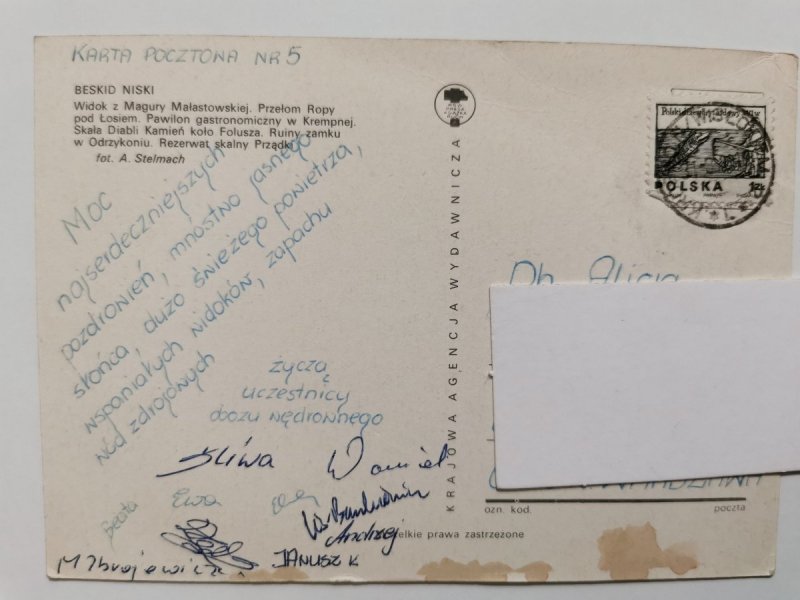 KARTA POCZTOWA NR 5
BESKID NISKI
Widok z Magury Małastowskiej. Przełom Ropy
pod Łosiem. Pawilon gastronomiczny w Krempnej.
Skała Diabli Kamień koło Folusza. Ruiny zamku
w Odrzykoniu. Rezerwat skalny Prządki
fot. A. Stelmach
Moc
najserdeczniejszych
pozdrowień, mnóstwo jasnego
słońca, dużo świeżego powietrza,
wspaniałych widoków, zapachu
wód zdrojowych
życzą
uczestnicy
obozu wędrownego
Śliwa
Daniel
Beata
Ewa
Andrzej
JANUSZ K
KRAJOWA AGENCJA WYDAWNICZA
POLSKA 1zł
Dh. Alicja
ozn. kod. poczta
elkie prawa zastrzeżone